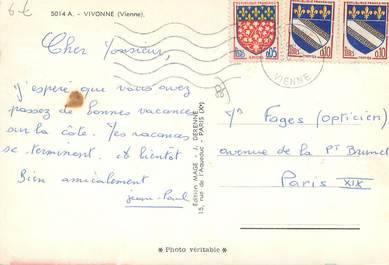 6-€
5014 A. - VIVONNE (Vienne).
Cher Monsieur,
J'espère que vous avez
passez de bonnes vacances
sur la côte. Mes vacances
se terminent. A bientôt
Bien amicalement
Jean-Paul
Édition MAGE - J. DERENNE
15, rue de l'Aqueduc - PARIS (X)
REPUBLIQUE FRANÇAISE
0,05
AMIENS
0,10
TROYES
0,10
TROYES
VIENNE
Mr Fages (opticien)
avenue de la Pte Brunet
Paris XIX
* Photo véritable *